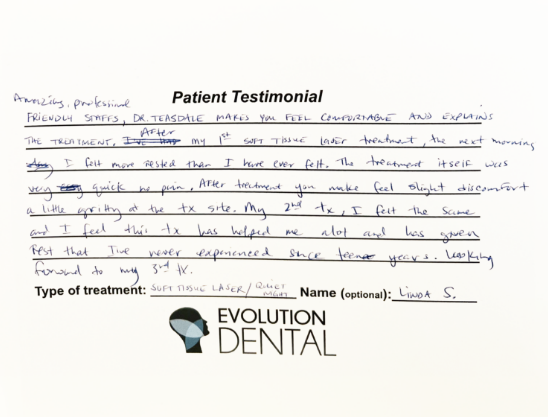 Patient Testimonial
Amazing, professional
FRIENDLY STAFFS, DR. TEASDALE MAKES YOU FEEL COMFORTABLE AND EXPLAINS
THE TREATMENT, After my 1st SOFT TISSUE laser treatment, the next morning
I felt more rested than I have ever felt. The treatment itself was
very quick no pain, After treatment you make feel slight discomfort
a little gritty at the tx site. My 2nd tx, I felt the same
and I feel this tx has helped me alot and has given
rest that I've never experienced since teen years. Looking
forward to my 3rd tx.
Type of treatment: SOFT TISSUE LASER / QUIET NIGHT Name (optional): LINDA S.
EVOLUTION
DENTAL